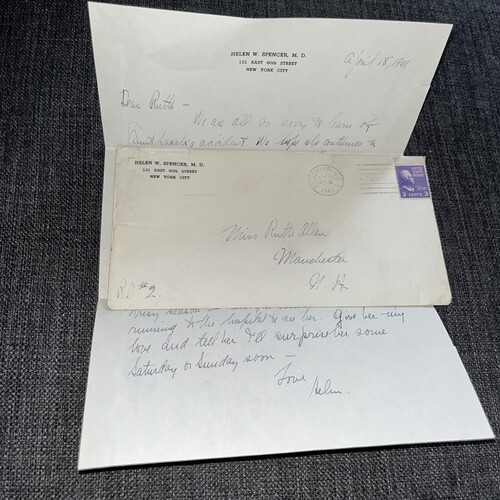 HELEN W. SPENCER, M. D.
131 EAST 60th STREET
NEW YORK CITY
April 18, 1941
Dear Ruth –
We are all so sorry to learn of
Aunt Sarah's accident. We hope she continues to
HELEN W. SPENCER, M. D.
131 EAST 60th STREET
NEW YORK CITY
3 CENTS 3
Miss Ruth Allen
Manchester
N. H.
RD #2.
busy season
running to the hospital to see her. Give her my
love and tell her I'll surprise her some
Saturday or Sunday soon –
Love
Helen.